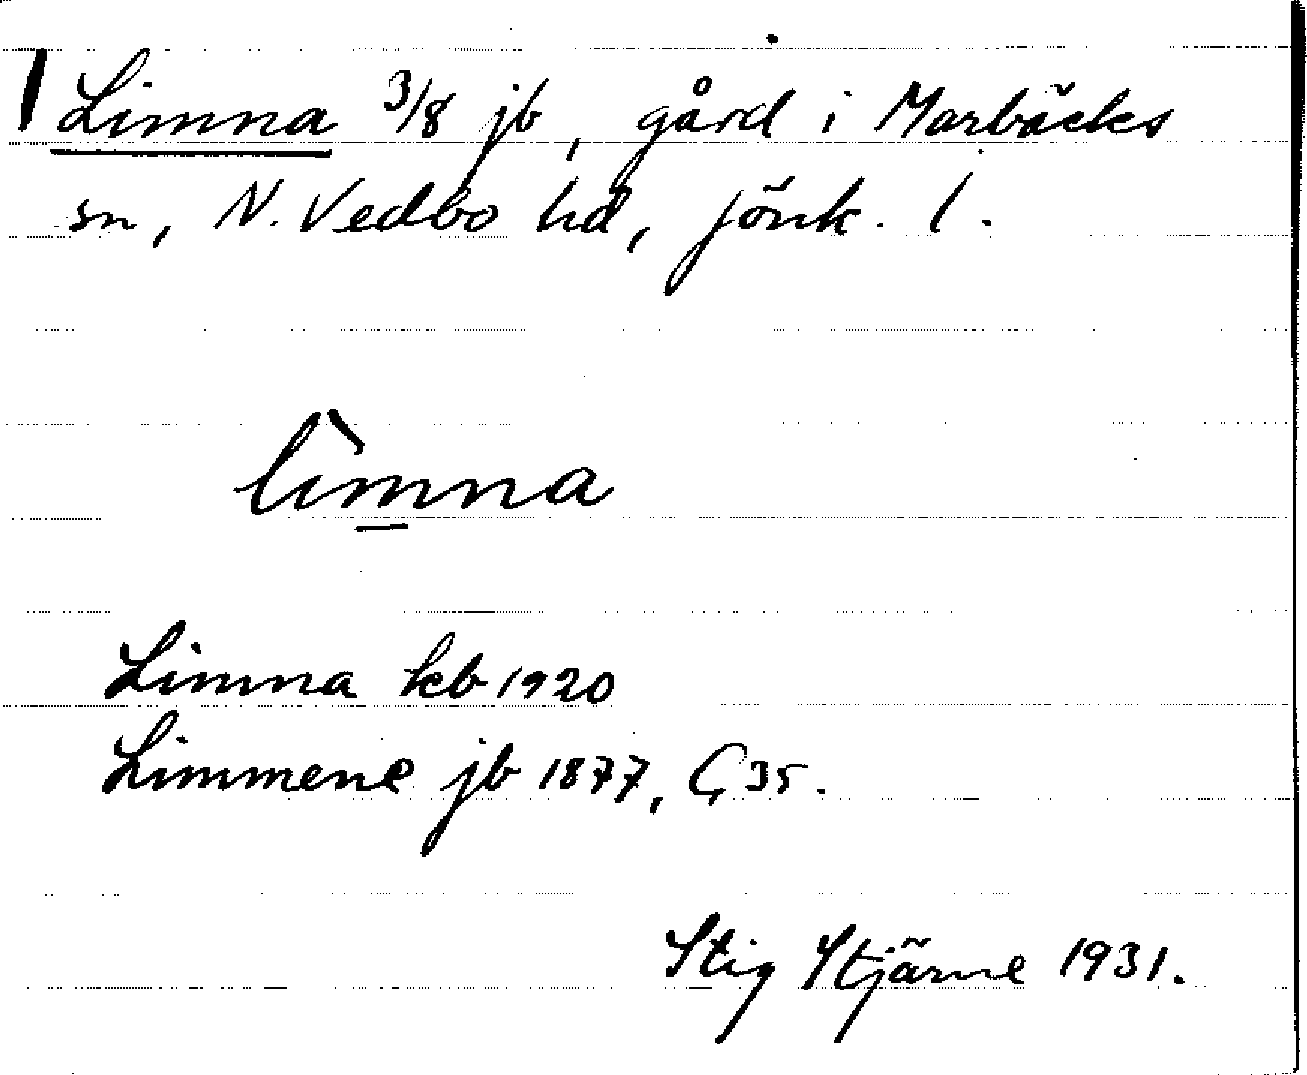 Limna 3/8 jb, gård i Marbäcks
sn, N. Vedbo hd, Jönk. l.
lìm̲na
Limna kb 1920
Limmene jb 1877, C, 35.
Stig Stjärne 1931.